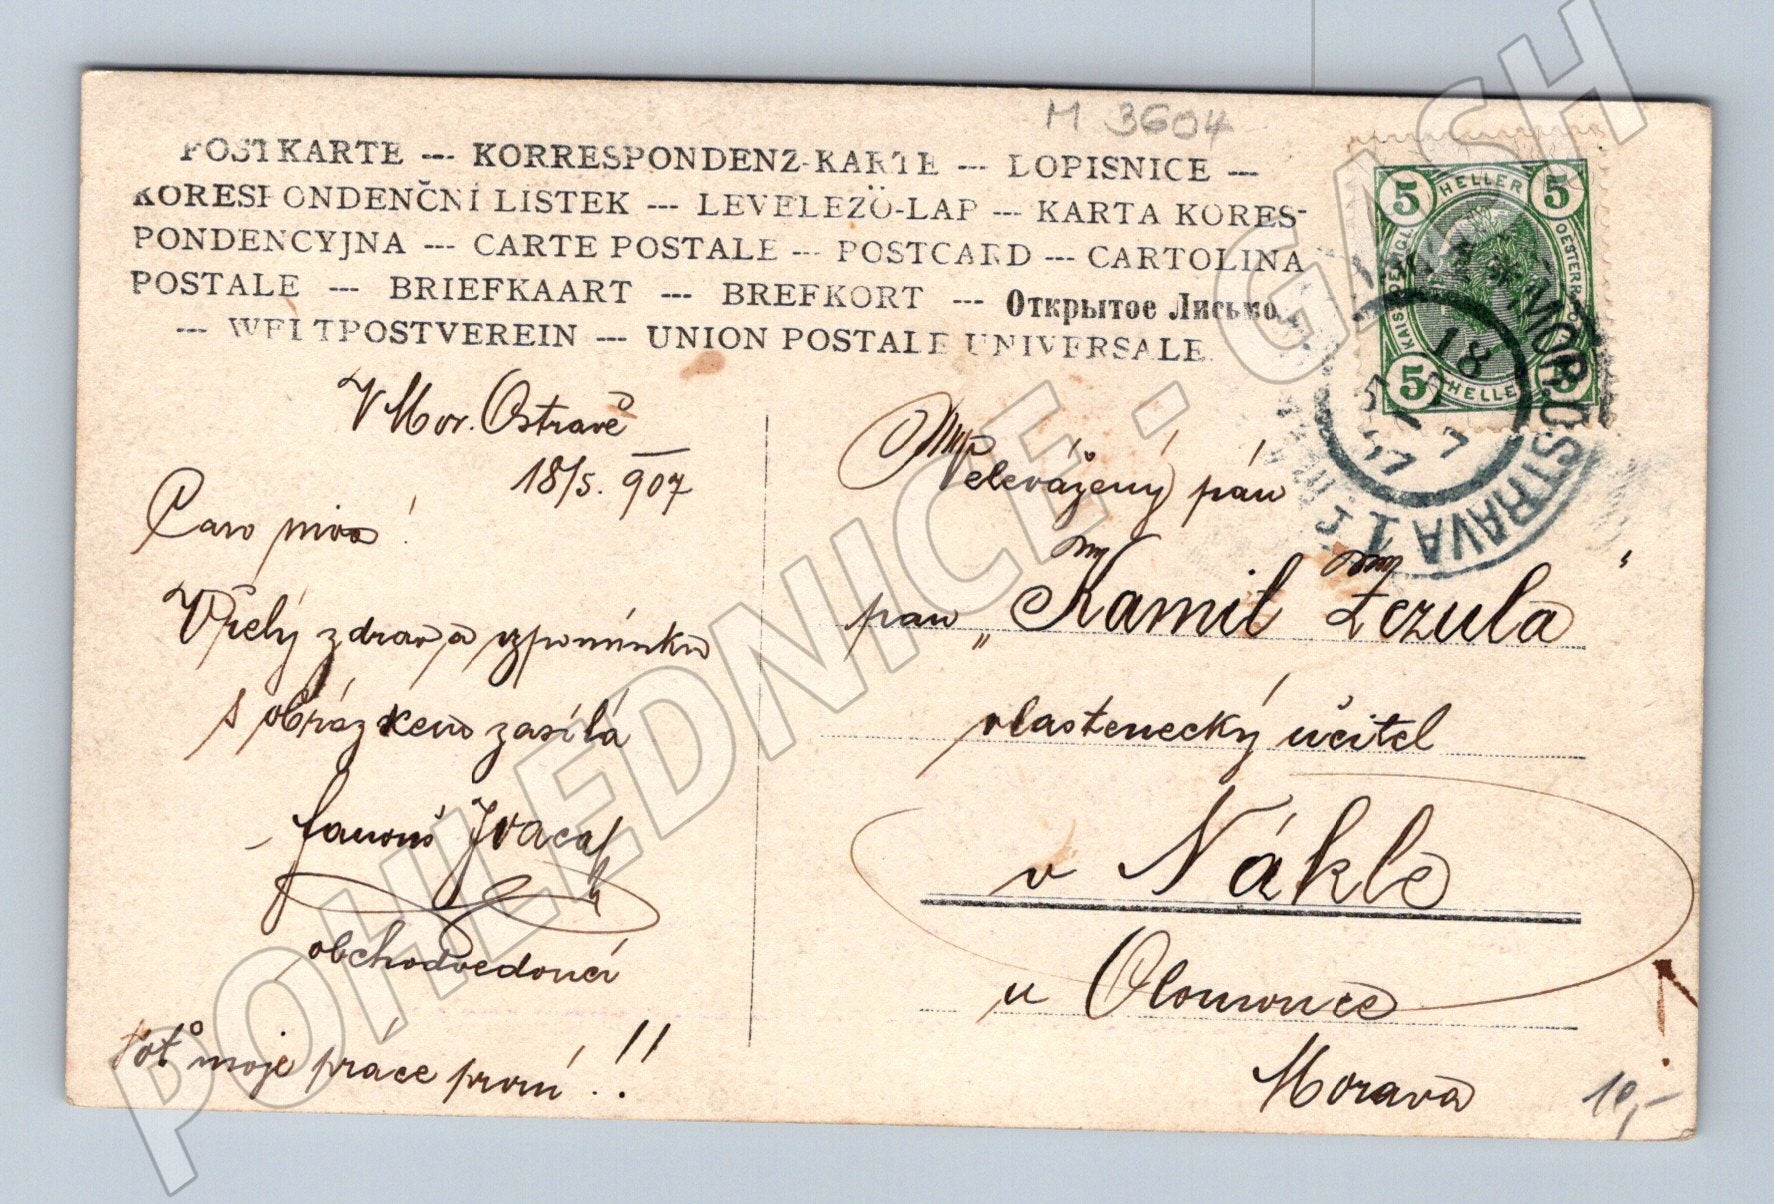 M 3604
POSTKARTE --- KORRESPONDENZ-KARTE --- DOPISNICE ---
KORESPONDENČNÍ LÍSTEK --- LEVELEZÖ-LAP --- KARTA KORES-
PONDENCYJNA --- CARTE POSTALE --- POSTCARD --- CARTOLINA
POSTALE --- BRIEFKAART --- BREFKORT --- Открытое Лисьмо
--- WELTPOSTVEREIN --- UNION POSTALE UNIVERSALE
5 HELLER 5
5 HELLER 5
MÄHR. OSTRAU 1
MOR. OSTRAVA 1
18
V Mor. Ostravě
18/5. 907
Vřelý zdrav a vzpomínku
s obrázkem zasílá
obchodvedoucí
Toť moje práce první!!
Velevážený pán
pan „Kamil Zezula"
vlastenecký učitel
v Nákle
u Olomouce
Morava
10,-
POHLEDNICE - GASH